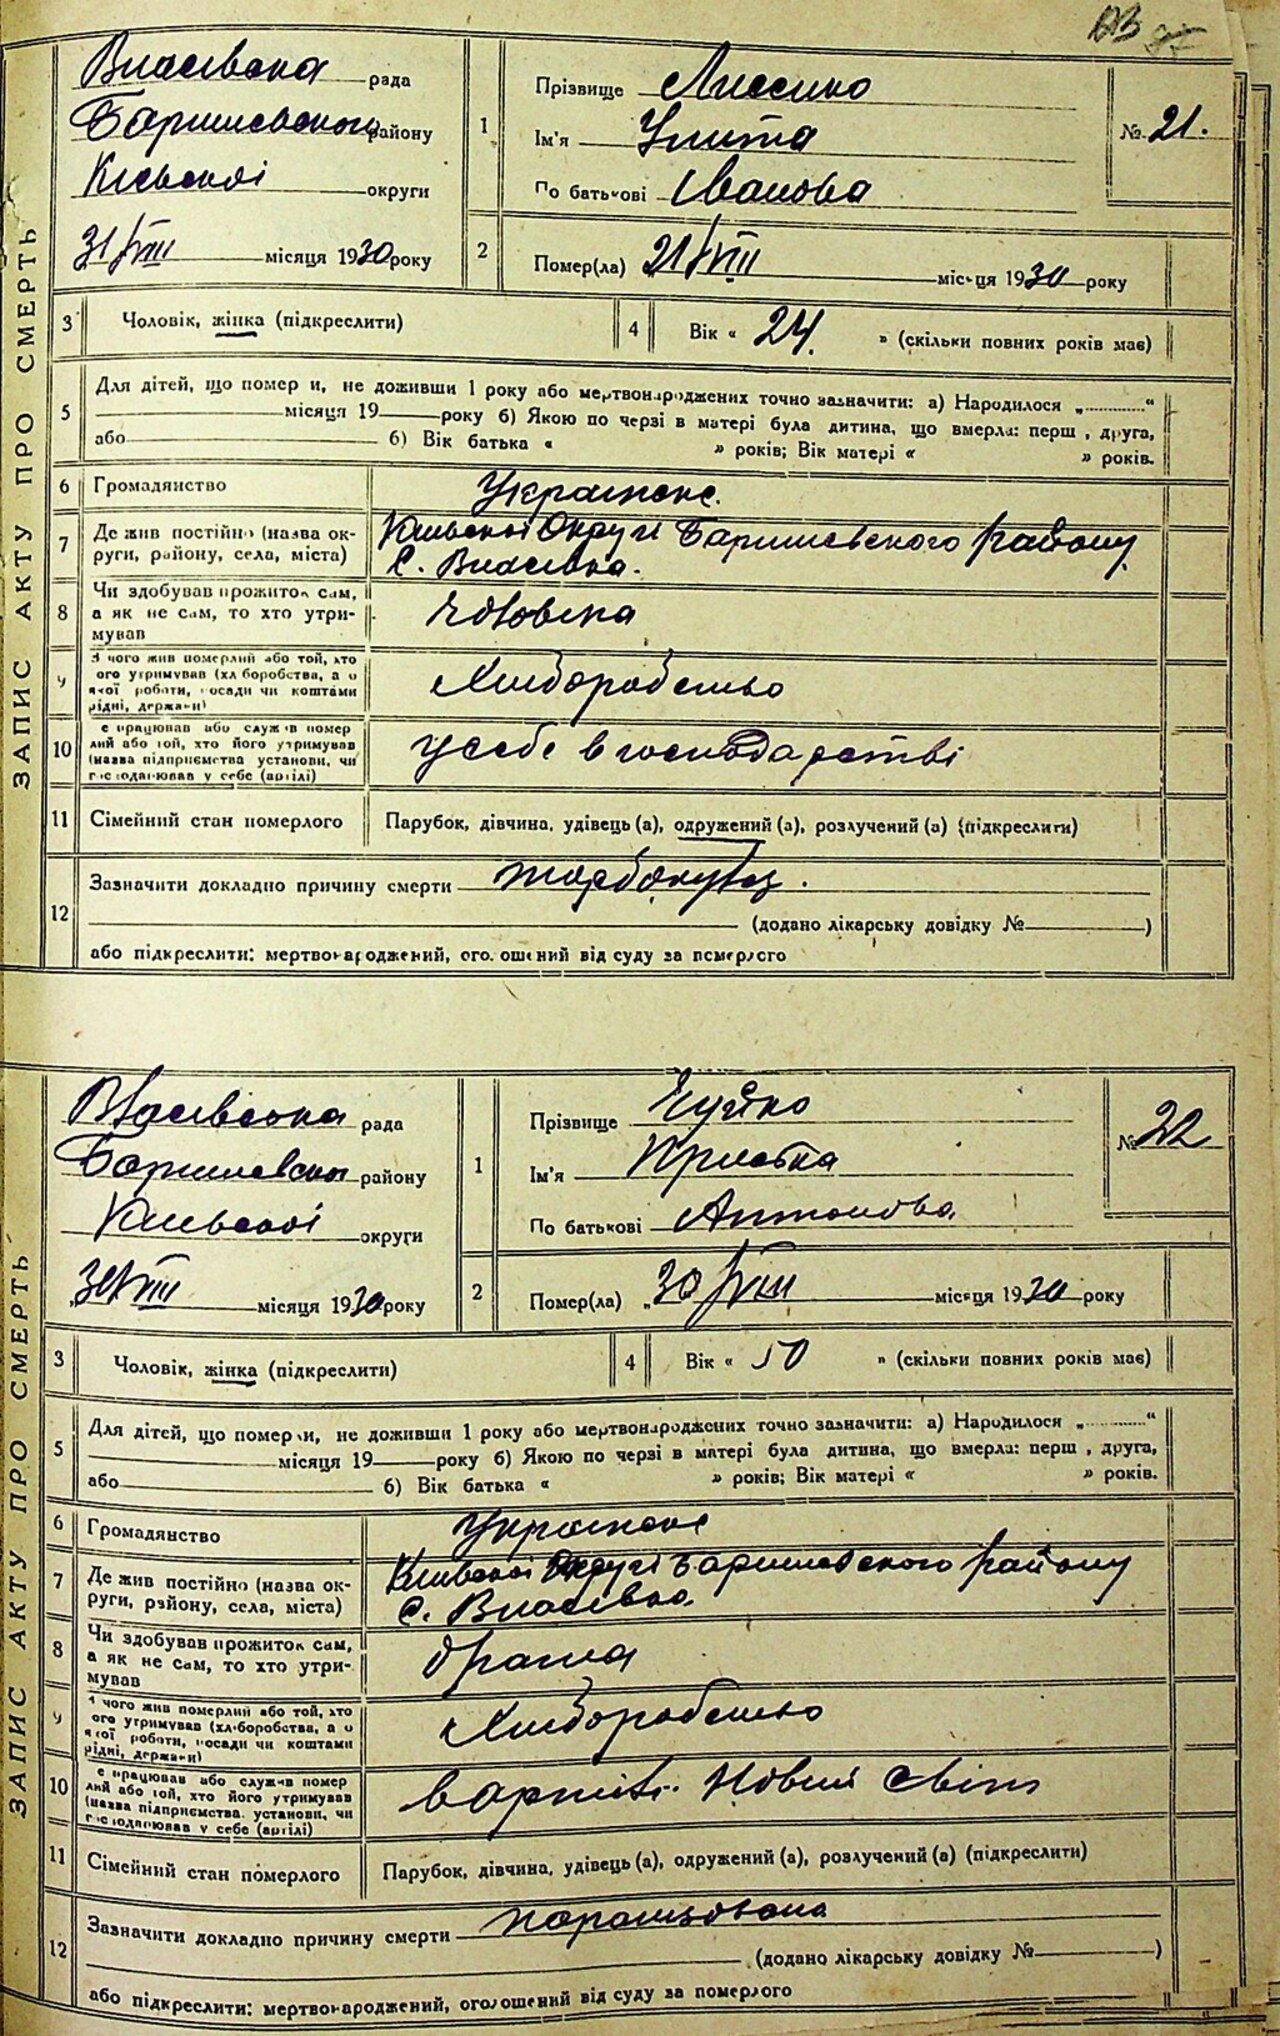 ЗАПИС АКТУ ПРО СМЕРТЬ
Власівська рада
Баришевського району
Київської округи
31/VIII місяця 1930 року
1
Прізвище Лисенко
Ім'я Улита
По батькові Іванова
№ 21.
2
Помер(ла) 21/VIII місяця 1930 року
3 Чоловік, жінка (підкреслити)
4 Вік « 24. » (скільки повних років має)
5 Для дітей, що померли, не доживши 1 року або мертвонароджених точно зазначити: а) Народилося „ “
місяця 19 року б) Якою по черзі в матері була дитина, що вмерла: перш , друга,
або б) Вік батька « » років; Вік матері « » років.
6 Громадянство Українське.
7 Де жив постійно (назва округи, району, села, міста) Київської Округи Баришевського району
С. Власівка.
8 Чи здобував прожиток сам, а як не сам, то хто утримував Чоловіка
9 З чого жив померлий або той, хто його утримував (хліборобства, а о якої роботи, посади чи коштами рідні, держави) Хліборобство
10 Де працював або служив померлий або той, хто його утримував (назва підприємства установи, чи господарював у себе (артілі) у себе в господарстві
11 Сімейний стан померлого Парубок, дівчина, удівець (а), одружений (а), розлучений (а) (підкреслити)
12 Зазначити докладно причину смерти
(додано лікарську довідку № )
або підкреслити: мертвонароджений, оголошений від суду за померлого
ЗАПИС АКТУ ПРО СМЕРТЬ
Власівська рада
Баришевська району
Київської округи
місяця 1930 року
1
Прізвище Чуйко
Ім'я Приська
По батькові Антонова
№ 22
2
Помер(ла) „30/VIII місяця 1930 року
3 Чоловік, жінка (підкреслити)
4 Вік « 50 » (скільки повних років має)
5 Для дітей, що померли, не доживши 1 року або мертвонароджених точно зазначити: а) Народилося „ “
місяця 19 року б) Якою по черзі в матері була дитина, що вмерла: перш , друга,
або б) Вік батька « » років; Вік матері « » років.
6 Громадянство Українське
7 Де жив постійно (назва округи, району, села, міста) Київської Округи Баришевського району
С. Власівка
8 Чи здобував прожиток сам, а як не сам, то хто утримував брата
9 З чого жив померлий або той, хто його утримував (хліборобства, а о якої роботи, посади чи коштами рідні, держави) Хліборобство
10 Де працював або служив померлий або той, хто його утримував (назва підприємства установи, чи господарював у себе (артілі) в артілі Новий світ
11 Сімейний стан померлого Парубок, дівчина, удівець (а), одружений (а), розлучений (а) (підкреслити)
12 Зазначити докладно причину смерти паралізована
(додано лікарську довідку № )
або підкреслити: мертвонароджений, оголошений від суду за померлого